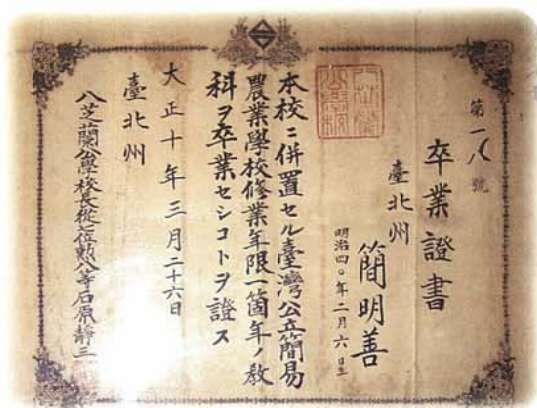 第一八號
卒業證書
臺北州
簡明善
明治四〇年二月六日生
本校ニ併置セル臺灣公立簡易
農業學校修業年限一箇年ノ教
科ヲ卒業セシコトヲ證ス
大正十年三月二十六日
臺北州
八芝蘭公學校長從七位勲八等石原靜三